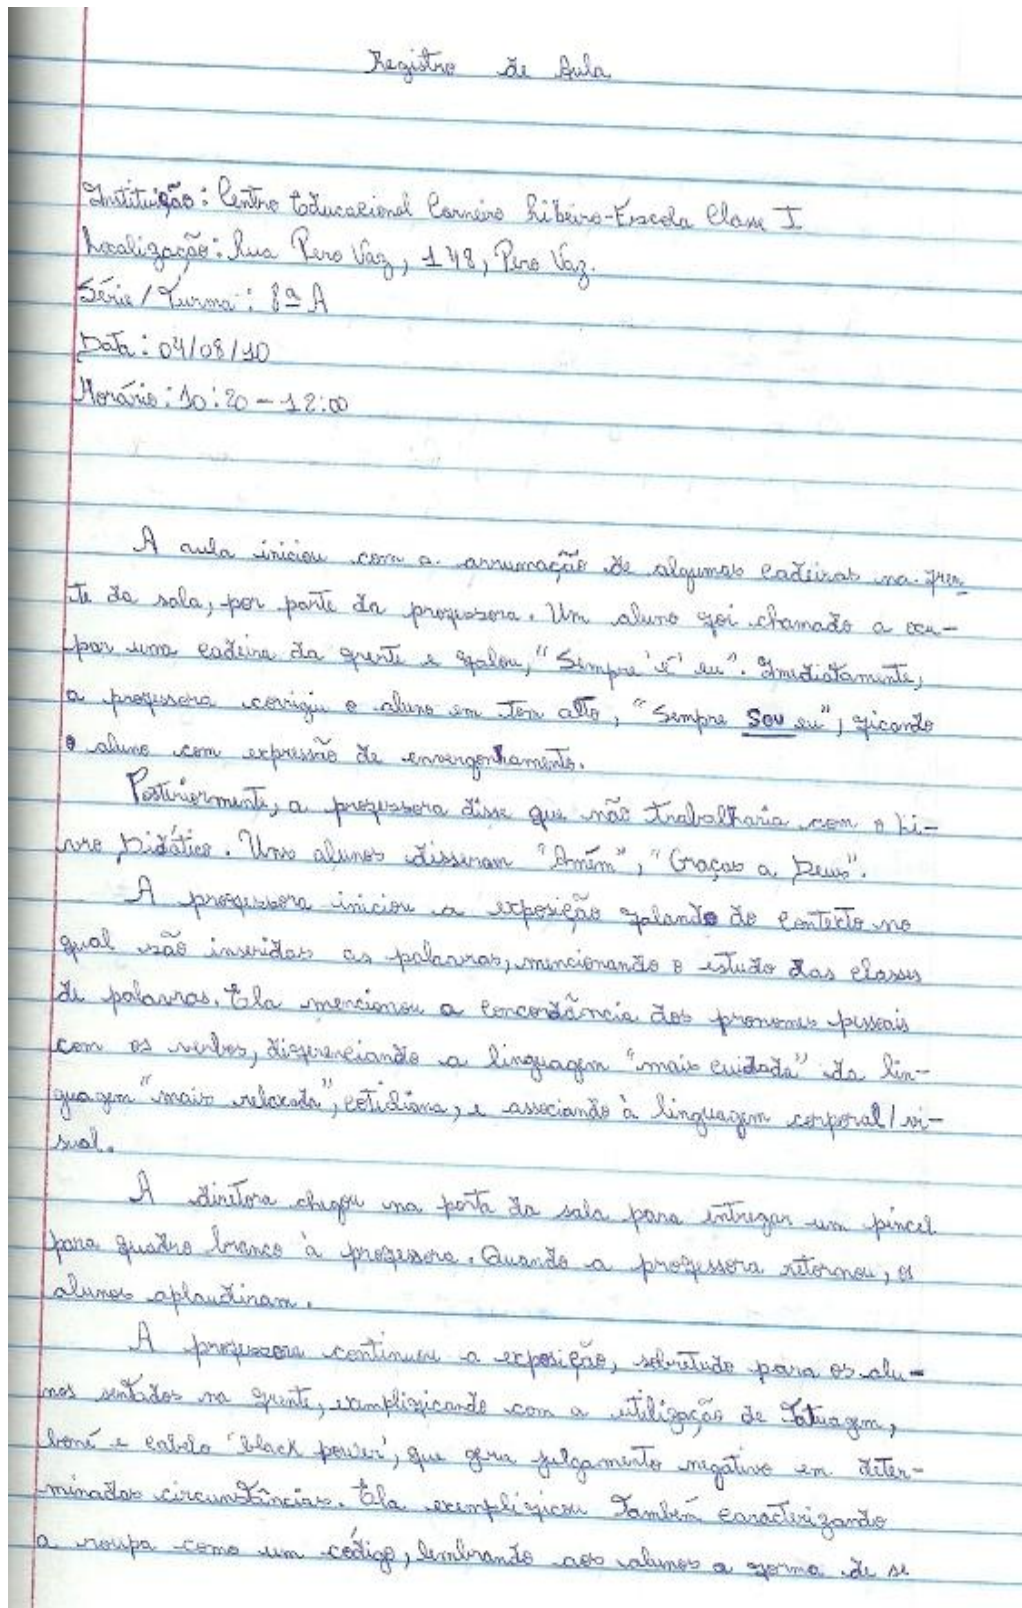 Registro de Aula
Instituição: Centro Educacional Carneiro Ribeiro-Escola Classe I
Localização: Rua Pero Vaz, 148, Pero Vaz.
Série/Turma: 8ª A
Data: 04/08/10
Horário: 10:20 - 12:00
A aula iniciou com a arrumação de algumas cadeiras na fren-
te da sala, por parte da professora. Um aluno foi chamado a ocu-
par uma cadeira da frente e falou, "Sempre 'é' eu". Imediatamente,
a professora corrigiu o aluno em tom alto, "Sempre sou eu", ficando
o aluno com expressão de envergonhamento.
Posteriormente, a professora disse que não trabalharia com o Li-
vro Didático. Uns alunos disseram "Amém", "Graças a Deus".
A professora iniciou a exposição falando do contexto no
qual são inseridas as palavras, mencionando o estudo das classes
de palavras. Ela mencionou a concordância dos pronomes pessoais
com os verbos, diferenciando a linguagem "mais cuidada" da lin-
guagem "mais relaxada", cotidiana, e associando à linguagem corporal/vi-
sual.
A diretora chegou na porta da sala para entregar um pincel
para quadro branco à professora. Quando a professora retornou, os
alunos aplaudiram.
A professora continuou a exposição, sobretudo para os alu-
nos sentados na frente, exemplificando com a utilização de tatuagem,
boné e cabelo 'black power', que gera julgamento negativo em deter-
minadas circunstâncias. Ela exemplificou também caracterizando
a roupa como um código, lembrando aos alunos a forma de se